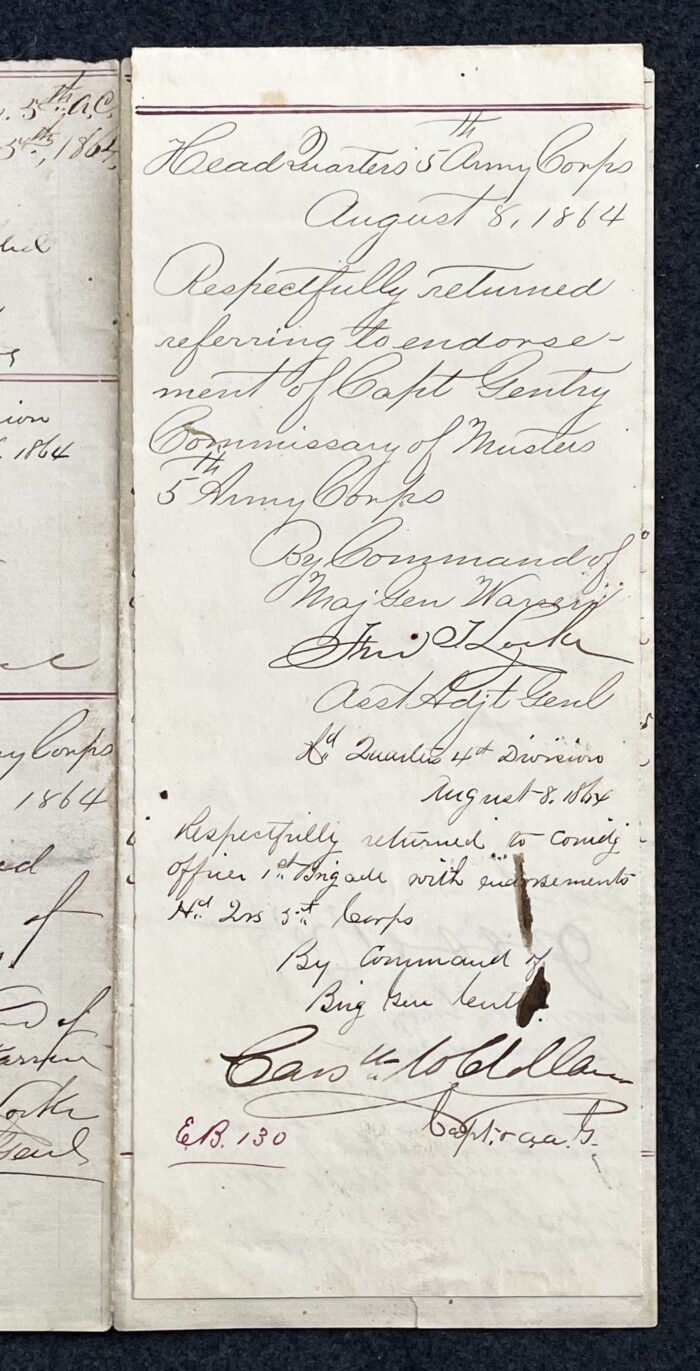 . 5th A.C.
5th, 1864,
ion
1864
ny Corps
1864
ed
of
nd of
arren
Locke
Genl
Head Quarters 5th Army Corps
August 8, 1864
Respectfully returned
referring to endorse-
ment of Capt Gentry
Commissary of Musters
5th Army Corps
By Command of
Maj Gen Warren
Fred T Locke
Asst Adjt Genl
Hd Quarters 4th Division
August 8. 1864
Respectfully returned to Comdg
officer 1st Brigade with endorsements
Hd Qrs 5th Corps
By Command of
Brig Gen Cutler
Capt. & a.a.G.
E.B. 130